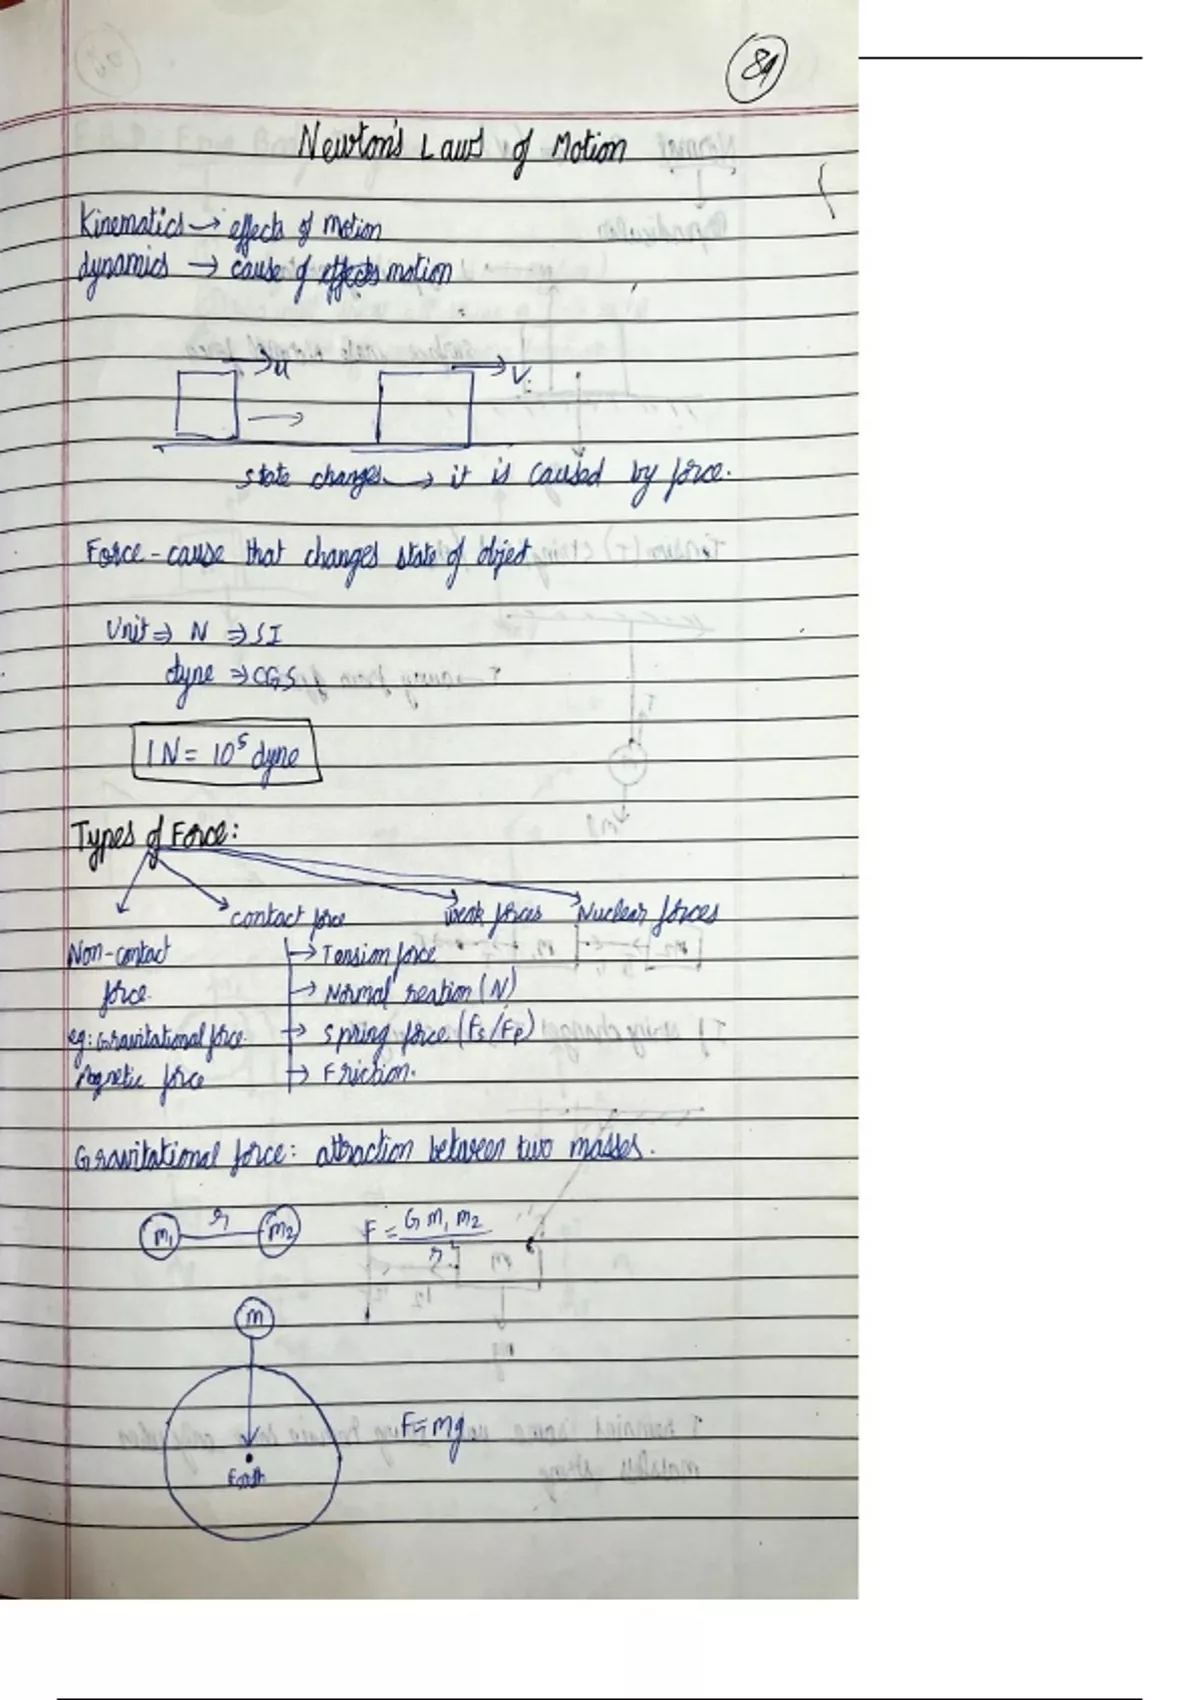 89
Newton's Laws of Motion
Kinematics → effects of motion
dynamics → cause of effects motion
u
V
state changes → it is caused by force.
Force - cause that changes state of object
Unit ⇒ N ⇒ SI
dyne ⇒ CGS
1 N = 10⁵ dyne
Types of Force:
contact force weak forces Nuclear forces
Non-contact → Tension force
force. → Normal reation (N)
eg: Gravitational force. → Spring force (Fs/Fp)
Magnetic force → Friction.
Gravitational force: attraction between two masses.
m₁ r m₂ F = G m₁ m₂
r²
m
F = mg
Earth